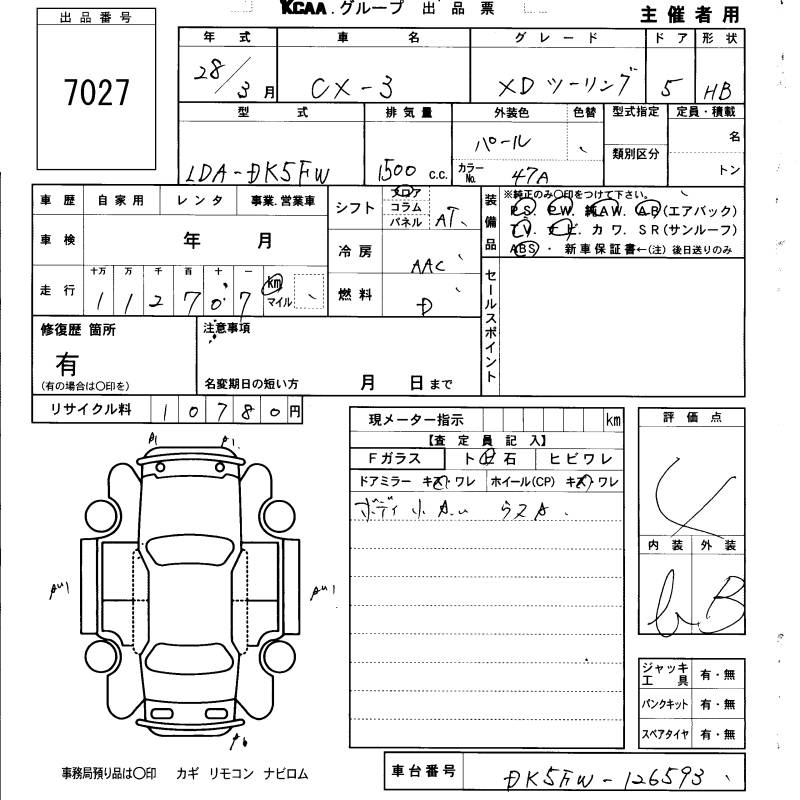 KCAA.グループ 出品票
主催者用
出品番号
7027
年式 車名 グレード ドア 形状
28/3月 CX-3 XDツーリング 5 HB
型式 排気量 外装色 色替 型式指定 定員・積載
LDA-DK5FW 1500 c.c. パール 類別区分 名
カラーNo. 47A トン
車歴 自家用 レンタ 事業.営業車
車検 年 月
走行 十万 万 千 百 十 一
112707 km マイル
シフト フロア コラム パネル AT
冷房 AAC
燃料 D
装備品 ※純正のみ○印をつけて下さい。
PS. PW. 純AW. AB(エアバック)
TV. ナビ. カワ. SR(サンルーフ)
ABS・新車保証書←(注)後日送りのみ
セールスポイント
修復歴 箇所
有
(有の場合は○印を)
注意事項
名変期日の短い方 月 日まで
リサイクル料 10780円
現メーター指示 km
【査定員記入】
Fガラス ト日石 ヒビワレ
ドアミラー キズ・ワレ ホイール(CP) キズ・ワレ
ボディ小
評価点
内装 外装
B
ジャッキ工具 有・無
パンクキット 有・無
スペアタイヤ 有・無
事務局預り品は○印 カギ リモコン ナビロム
車台番号 DK5FW-126593